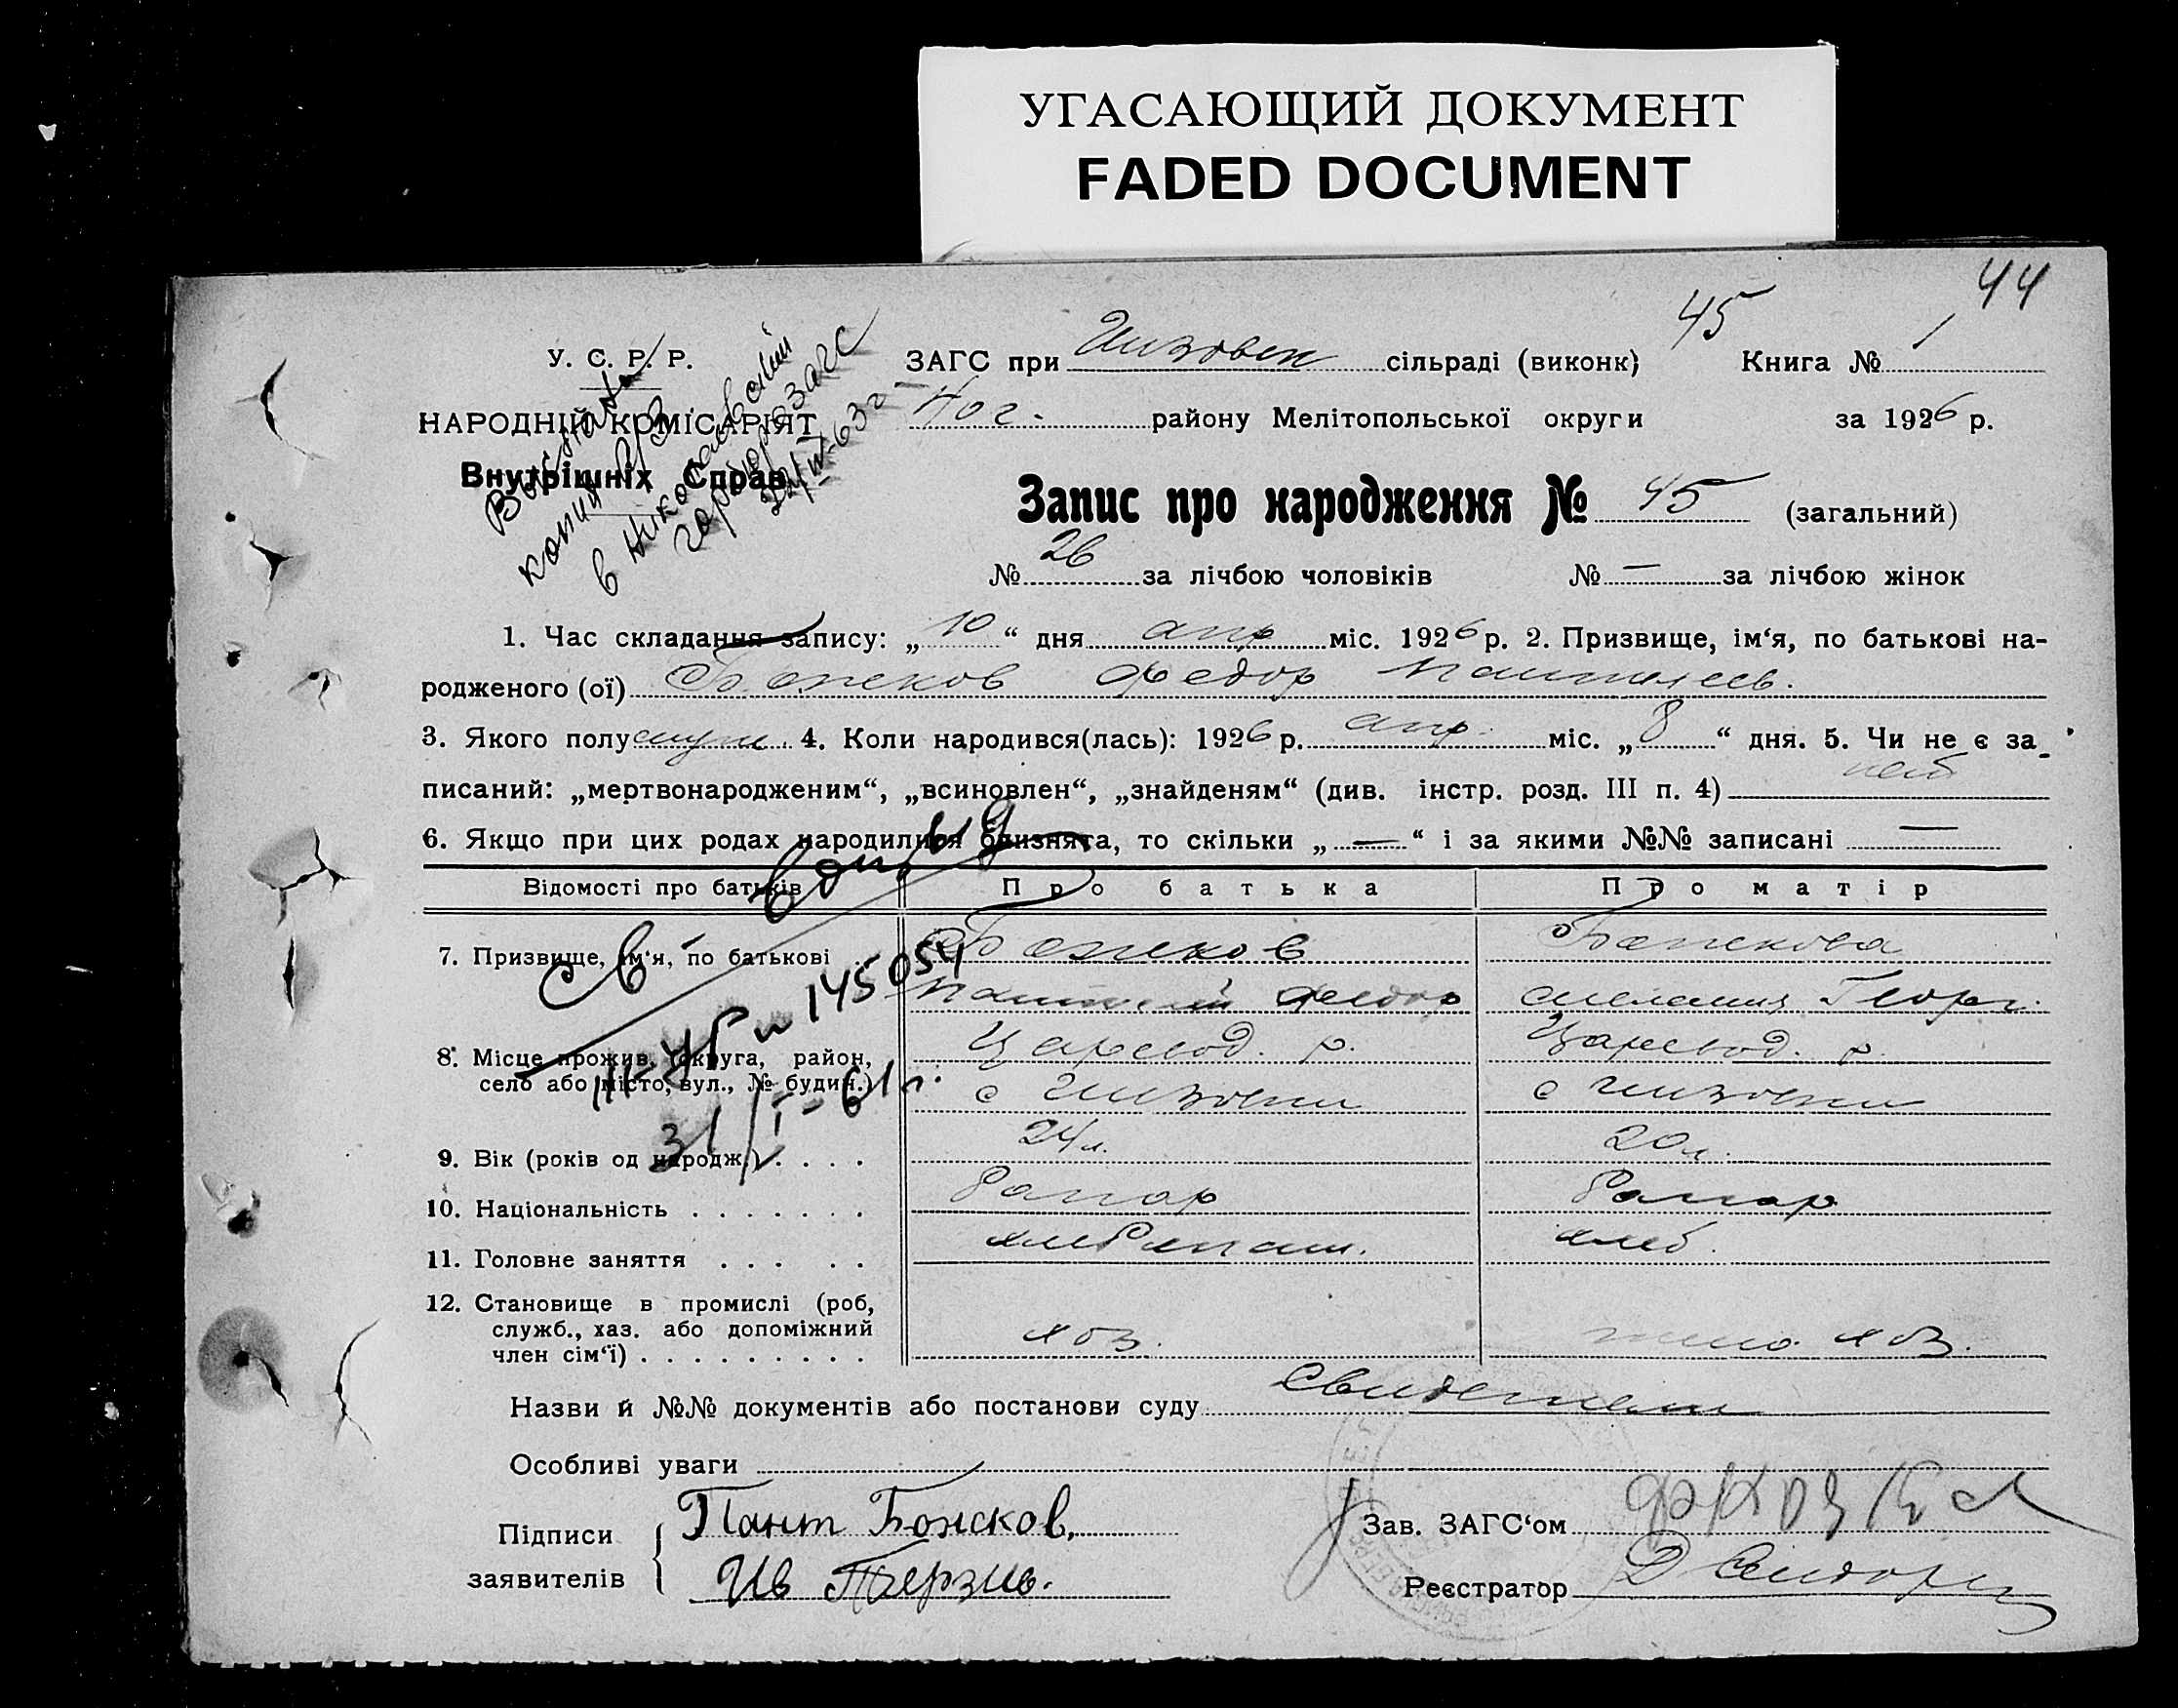 УГАСАЮЩИЙ ДОКУМЕНТ
FADED DOCUMENT
44
45
У. С. Р. Р.
НАРОДНІЙ КОМІСАРІЯТ
Внутрішніх Справ
копия
в
31/I-61 г.
ЗАГС при сільраді (виконк) Книга № 1
Ног. району Мелітопольської округи за 1926 р.
Запис про народження № 45 (загальний)
№ 26 за лічбою чоловіків № — за лічбою жінок
1. Час складання запису: „ 10 “ дня апр міс. 1926 р. 2. Призвище, ім‘я, по батькові на-
родженого (ої) Божков Федор Пантелеев.
3. Якого полу муж 4. Коли народився(лась): 1926 р. апр. міс. „ 8 “ дня. 5. Чи не є за-
писаний: „мертвонародженим“, „всиновлен“, „знайденям“ (див. інстр. розд. III п. 4) нет
6. Якщо при цих родах народилися близнята, то скільки „ — “ і за якими №№ записані —
Відомості про батьків Про батька Про матір
7. Призвище, ім‘я, по батькові Божков Божкова
Пантелей Федор Мелания Георг.
8. Місце прожив. (округа, район, Царевод. р. Царевод. р.
село або місто, вул., № будин.) с с
9. Вік (років од народж.) . . . . 24 л. 20 л.
10. Національність . . . . . . .
11. Головне заняття . . . . . хлебопаш. хлеб.
12. Становище в промислі (роб,
служб., хаз. або допоміжний
член сім‘ї) . . . . . . . . . хоз. хоз.
Назви й №№ документів або постанови суду
Особливі уваги
Підписи
заявителів
Пант Божсков,
Ив
Зав. ЗАГС‘ом
Реєстратор